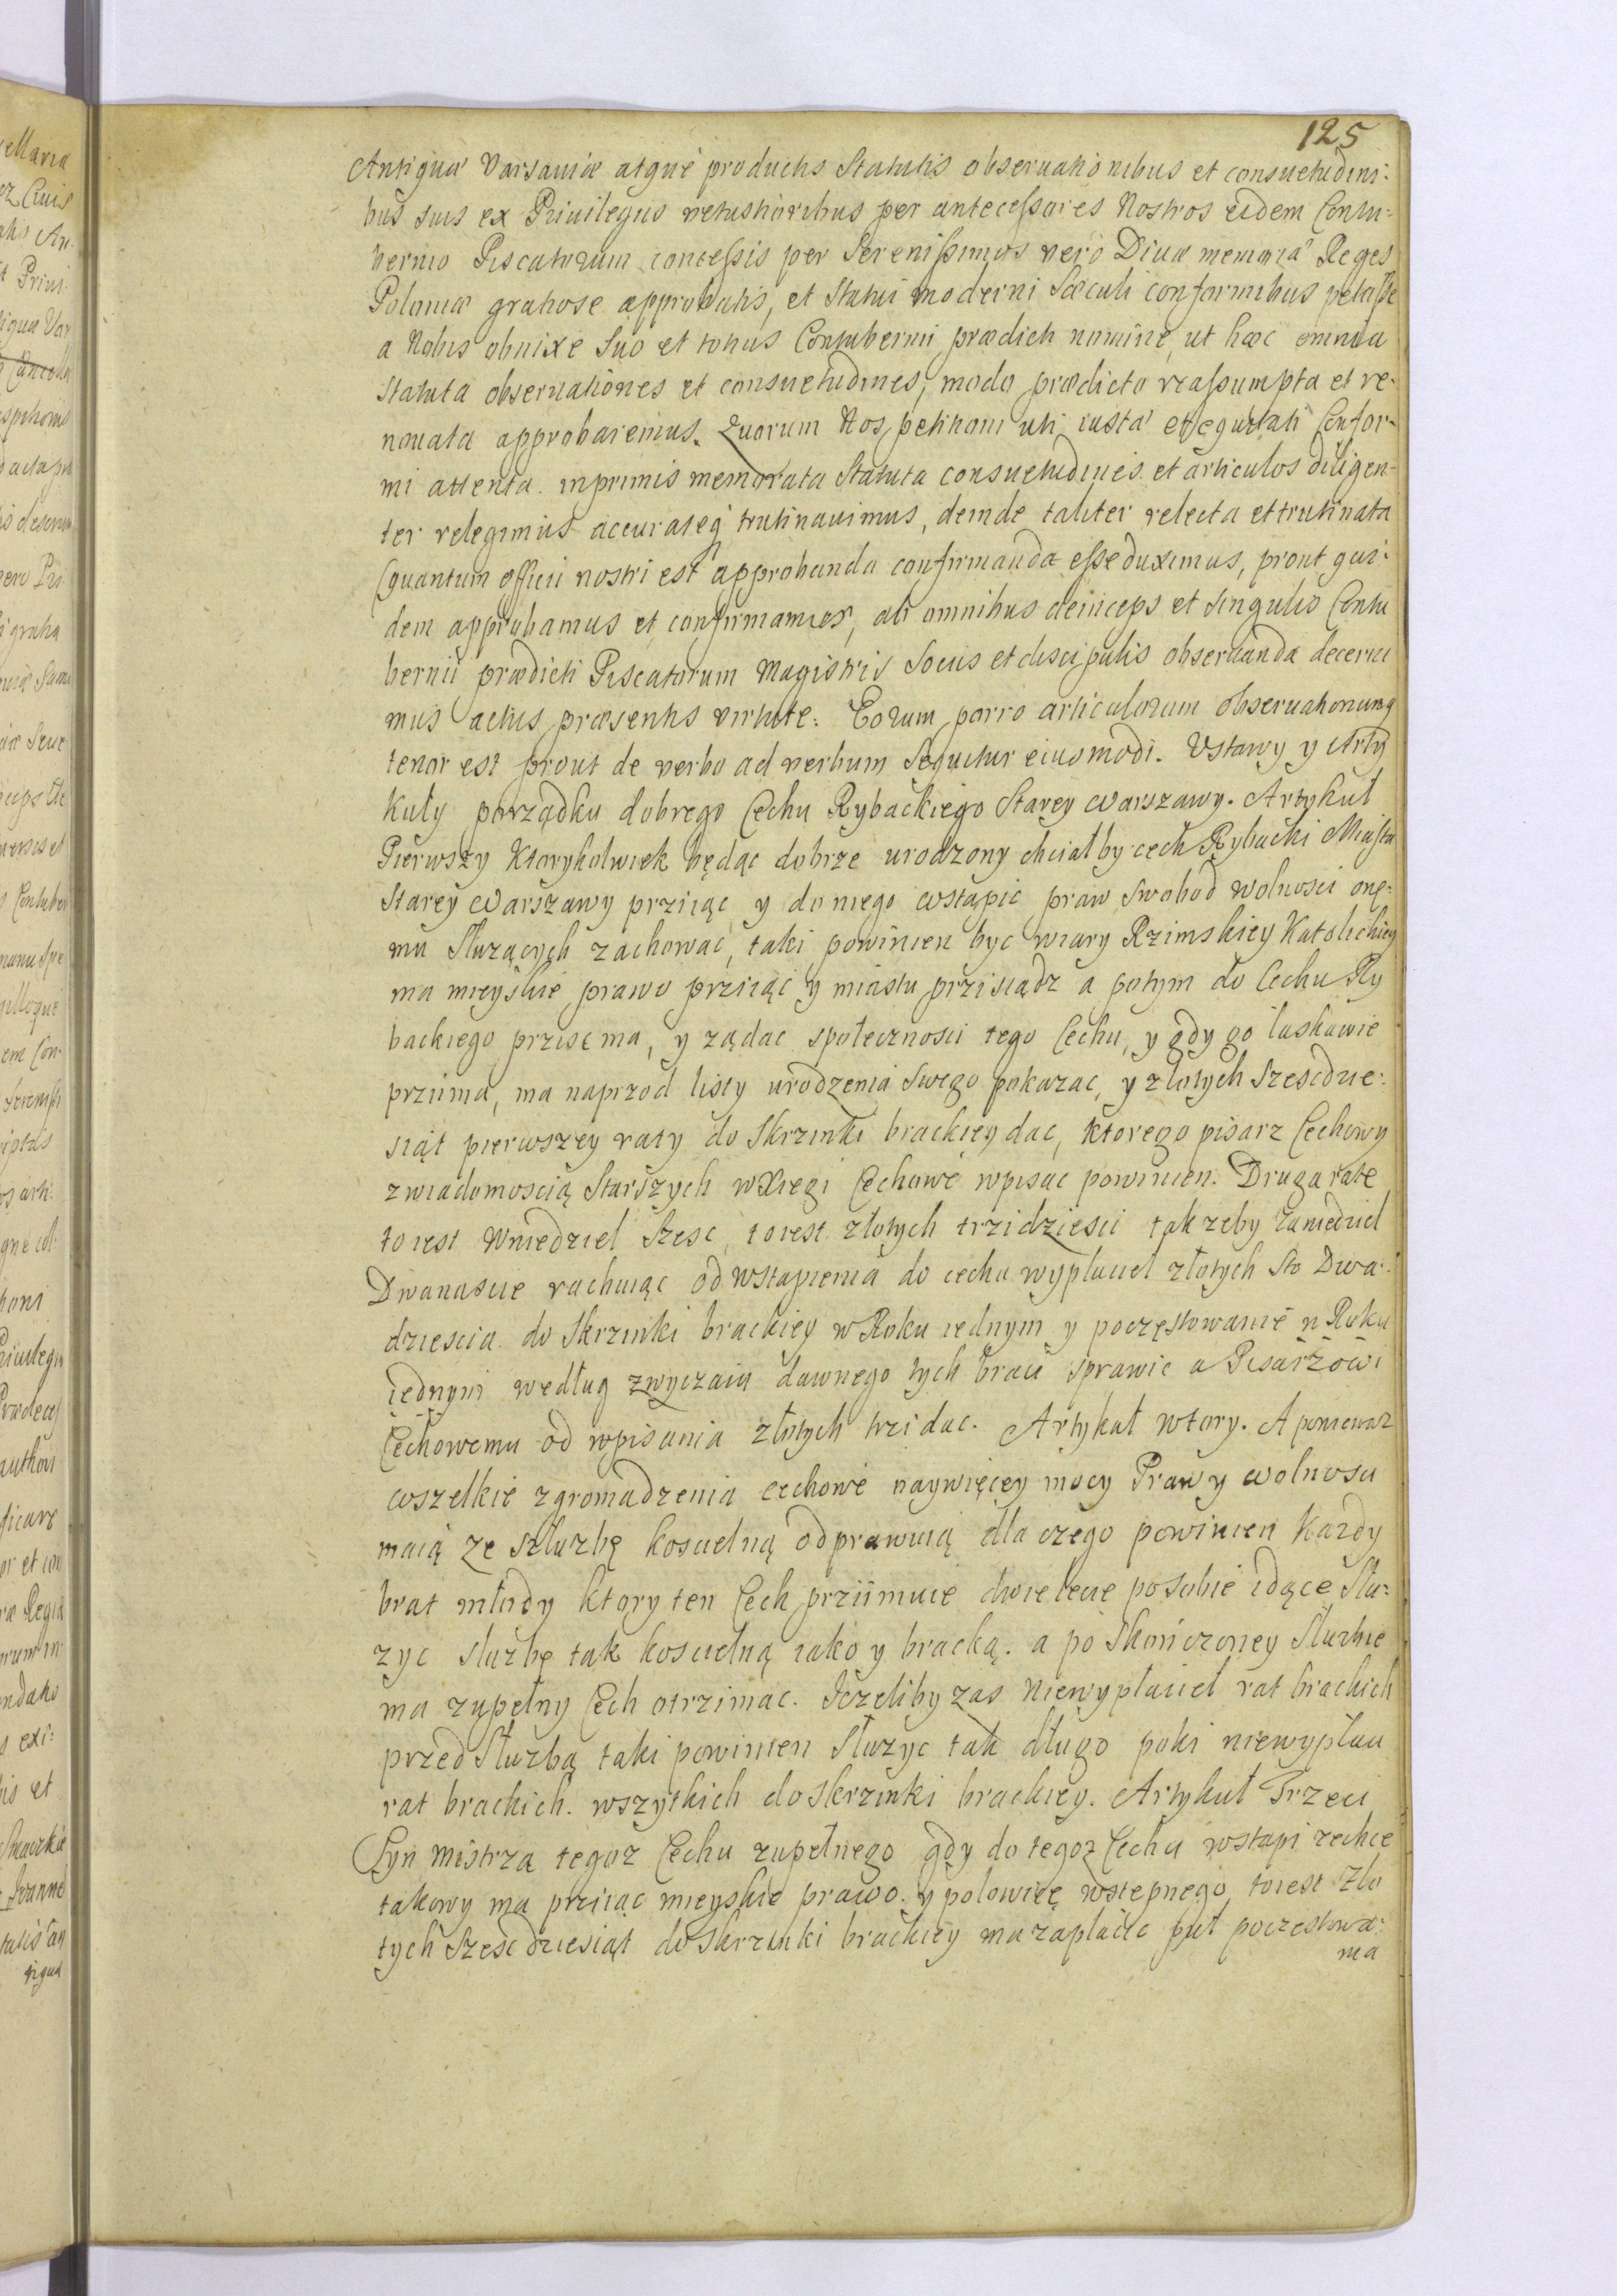 125
Antiquæ Varsaviæ atque productis Statutis observationibus et consuetudini-
bus suis ex Privilegiis vetustioribus per antecessores Nostros eidem Contu-
bernio Piscatorum concessis per Serenissimos vero Divæ memoriæ Reges
Poloniæ gratiose approbatis, et Statui moderni Sæculi conformibus petiisse
a Nobis obnixe Suo et totius Contubernii prædicti nomine, ut hæc omnia
statuta observationes et consuetudines, modo prædicto reassumpta et re-
novata approbaremus. Quorum Nos petitioni uti iustæ et æquitati Confor-
mi attenta. inprimis memorata Statuta consuetudines et articulos diligen-
ter relegimus accurateq trutinavimus, deinde taliter relecta et trutinata
(quantum officii nostri est approbanda confirmanda esse duximus, prout qui-
dem approbamus et confirmamus, ab omnibus deinceps et singulis Contu
bernii prædicti Piscatorum Magistris Sociis et discipulis observanda decerni
mus actus præsentis virtute. Eorum porro articulorum observationumq
tenor est prout de verbo ad verbum Sequitur eiusmodi. Ustawy y Arty
kuły porządku dobrego Cechu Rybackiego Starey Warszawy. Artykuł
Pierwszy Ktorykolwiek będąc dobrze urodzony chciałby cech Rybacki Miasta
Starey Warszawy prziiąc y do niego wstąpic praw Swobod wolnosci one-
mu Służących zachowac, taki powinien byc wiary Rzimskiey Katolickiey
ma mieyskie prawo prziiąc y miastu przisiądz a potym do Cechu Ry
backiego przisc ma, y ządac społecznosci tego Cechu, y gdy go łaskawie
prziima, ma naprzod listy urodzenia Swego pokazac, y złotych Szescdzie-
siąt pierwszey raty do Skrzinki brackiey dac, ktorego pisarz Cechowy
zwiadomoscią Starszych w Xiegi Cechowe wpisac powinien. Druga ratę
to iest Wniedziel Szesc, to iest złotych trzidziesci tak zeby zaniedziel
Dwanascie rachuiąc od wstąpienia do cechu wypłacieł złotych Sto Dwa-
dziescia do Skrzinki brackiey w Roku iednym y poczęstowanie w Roku
iednym według zwyczaiu dawnego tych braci sprawic a Pisarzowi
Cechowemu od wpisania złotych trzi dac. Artykuł wtory. A poniewaz
wszelkie zgromadzenia cechowe naywięcey mocy Praw y wolnosci
maią ze szłuzbę koscielną odprawuią dla czego powinien Kazdy
brat młody ktory ten Cech prziimuie dwie lecie posobie idące Słu-
zyc sluzbę tak koscielną iako y bracką. a po Skończoney Słuzbie
ma zupełny Cech otrzimac. Iezeliby zas niewypłacieł rat brackich
przed Słuzbą taki powinien Słuzyc tak długo poki niewypłaci
rat brackich. wszytkich do skrzinki brackiey. Artykuł Trzeci
Syn Mistrza tegoz Cechu zupełnego gdy do tegoz Cechu wstąpi zechce
takowy ma prziiąc mieyskie prawo. y połowicę wstepnego, toiest Zło
tych Szescdziesiąt do Skrzinki brackiey ma zapłacic puł poczęstowa-
nia